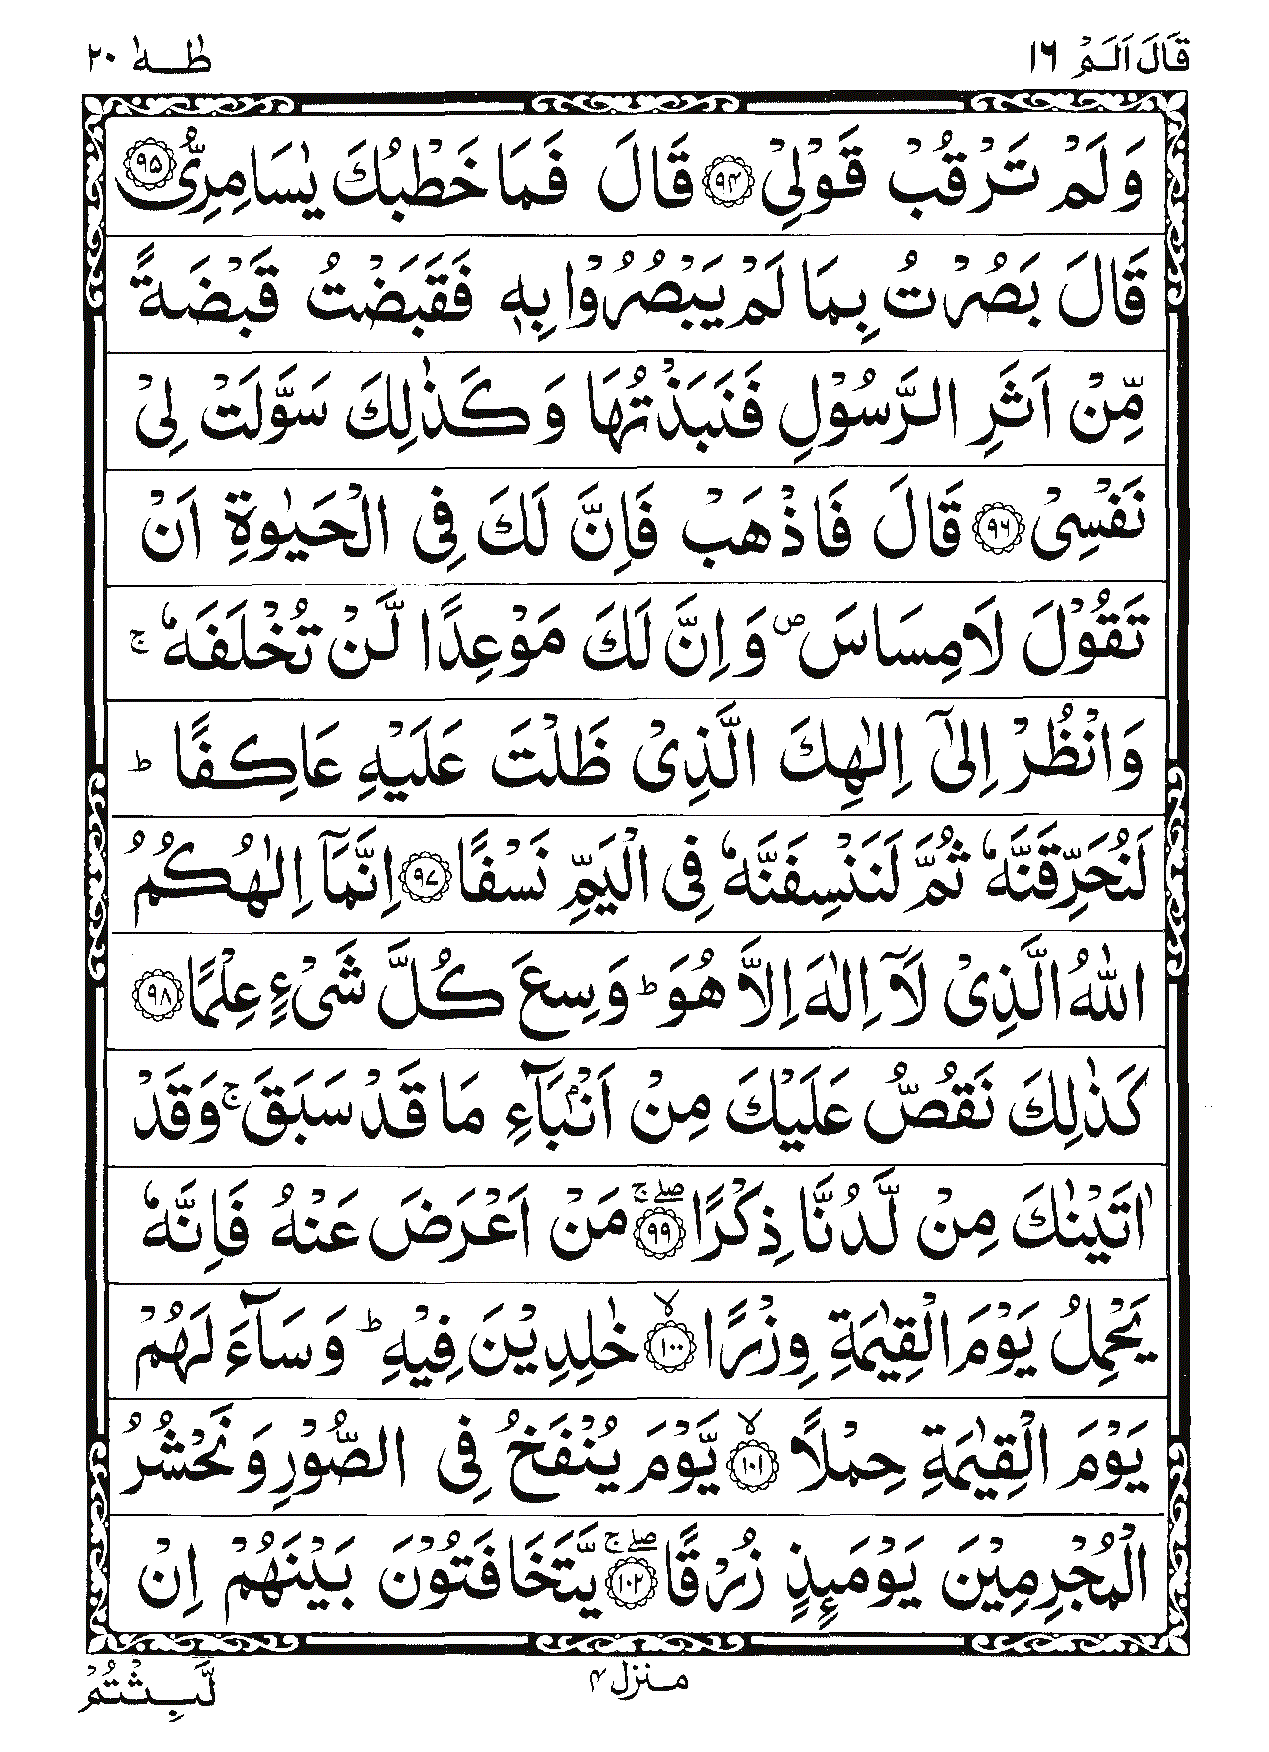 قَالَ اَلَمْ ١٦ طٰهٰ ٢٠
وَلَمْ تَرْقُبْ قَوْلِيْ ﴿٩٤﴾ قَالَ فَمَا خَطْبُكَ يٰسَامِرِيُّ ﴿٩٥﴾
قَالَ بَصُرْتُ بِمَا لَمْ يَبْصُرُوْا بِهٖ فَقَبَضْتُ قَبْضَةً
مِّنْ اَثَرِ الرَّسُوْلِ فَنَبَذْتُهَا وَكَذٰلِكَ سَوَّلَتْ لِيْ
نَفْسِيْ ﴿٩٦﴾ قَالَ فَاذْهَبْ فَاِنَّ لَكَ فِي الْحَيٰوةِ اَنْ
تَقُوْلَ لَا مِسَاسَ ۖ وَاِنَّ لَكَ مَوْعِدًا لَّنْ تُخْلَفَهٗ ۚ
وَانْظُرْ اِلٰٓى اِلٰهِكَ الَّذِيْ ظَلْتَ عَلَيْهِ عَاكِفًا ؕ
لَنُحَرِّقَنَّهٗ ثُمَّ لَنَنْسِفَنَّهٗ فِي الْيَمِّ نَسْفًا ﴿٩٧﴾ اِنَّمَآ اِلٰهُكُمُ
اللّٰهُ الَّذِيْ لَآ اِلٰهَ اِلَّا هُوَ ؕ وَسِعَ كُلَّ شَيْءٍ عِلْمًا ﴿٩٨﴾
كَذٰلِكَ نَقُصُّ عَلَيْكَ مِنْ اَنْۢبَآءِ مَا قَدْ سَبَقَ ۚ وَقَدْ
اٰتَيْنٰكَ مِنْ لَّدُنَّا ذِكْرًا ﴿٩٩﴾ ۖۚ مَنْ اَعْرَضَ عَنْهُ فَاِنَّهٗ
يَحْمِلُ يَوْمَ الْقِيٰمَةِ وِزْرًا ﴿١٠٠﴾ ۙ خٰلِدِيْنَ فِيْهِ ؕ وَسَآءَ لَهُمْ
يَوْمَ الْقِيٰمَةِ حِمْلًا ﴿١٠١﴾ ۙ يَّوْمَ يُنْفَخُ فِي الصُّوْرِ وَنَحْشُرُ
الْمُجْرِمِيْنَ يَوْمَئِذٍ زُرْقًا ﴿١٠٢﴾ ۖۚ يَّتَخَافَتُوْنَ بَيْنَهُمْ اِنْ
منزل ٤ لَّبِثْتُمْ